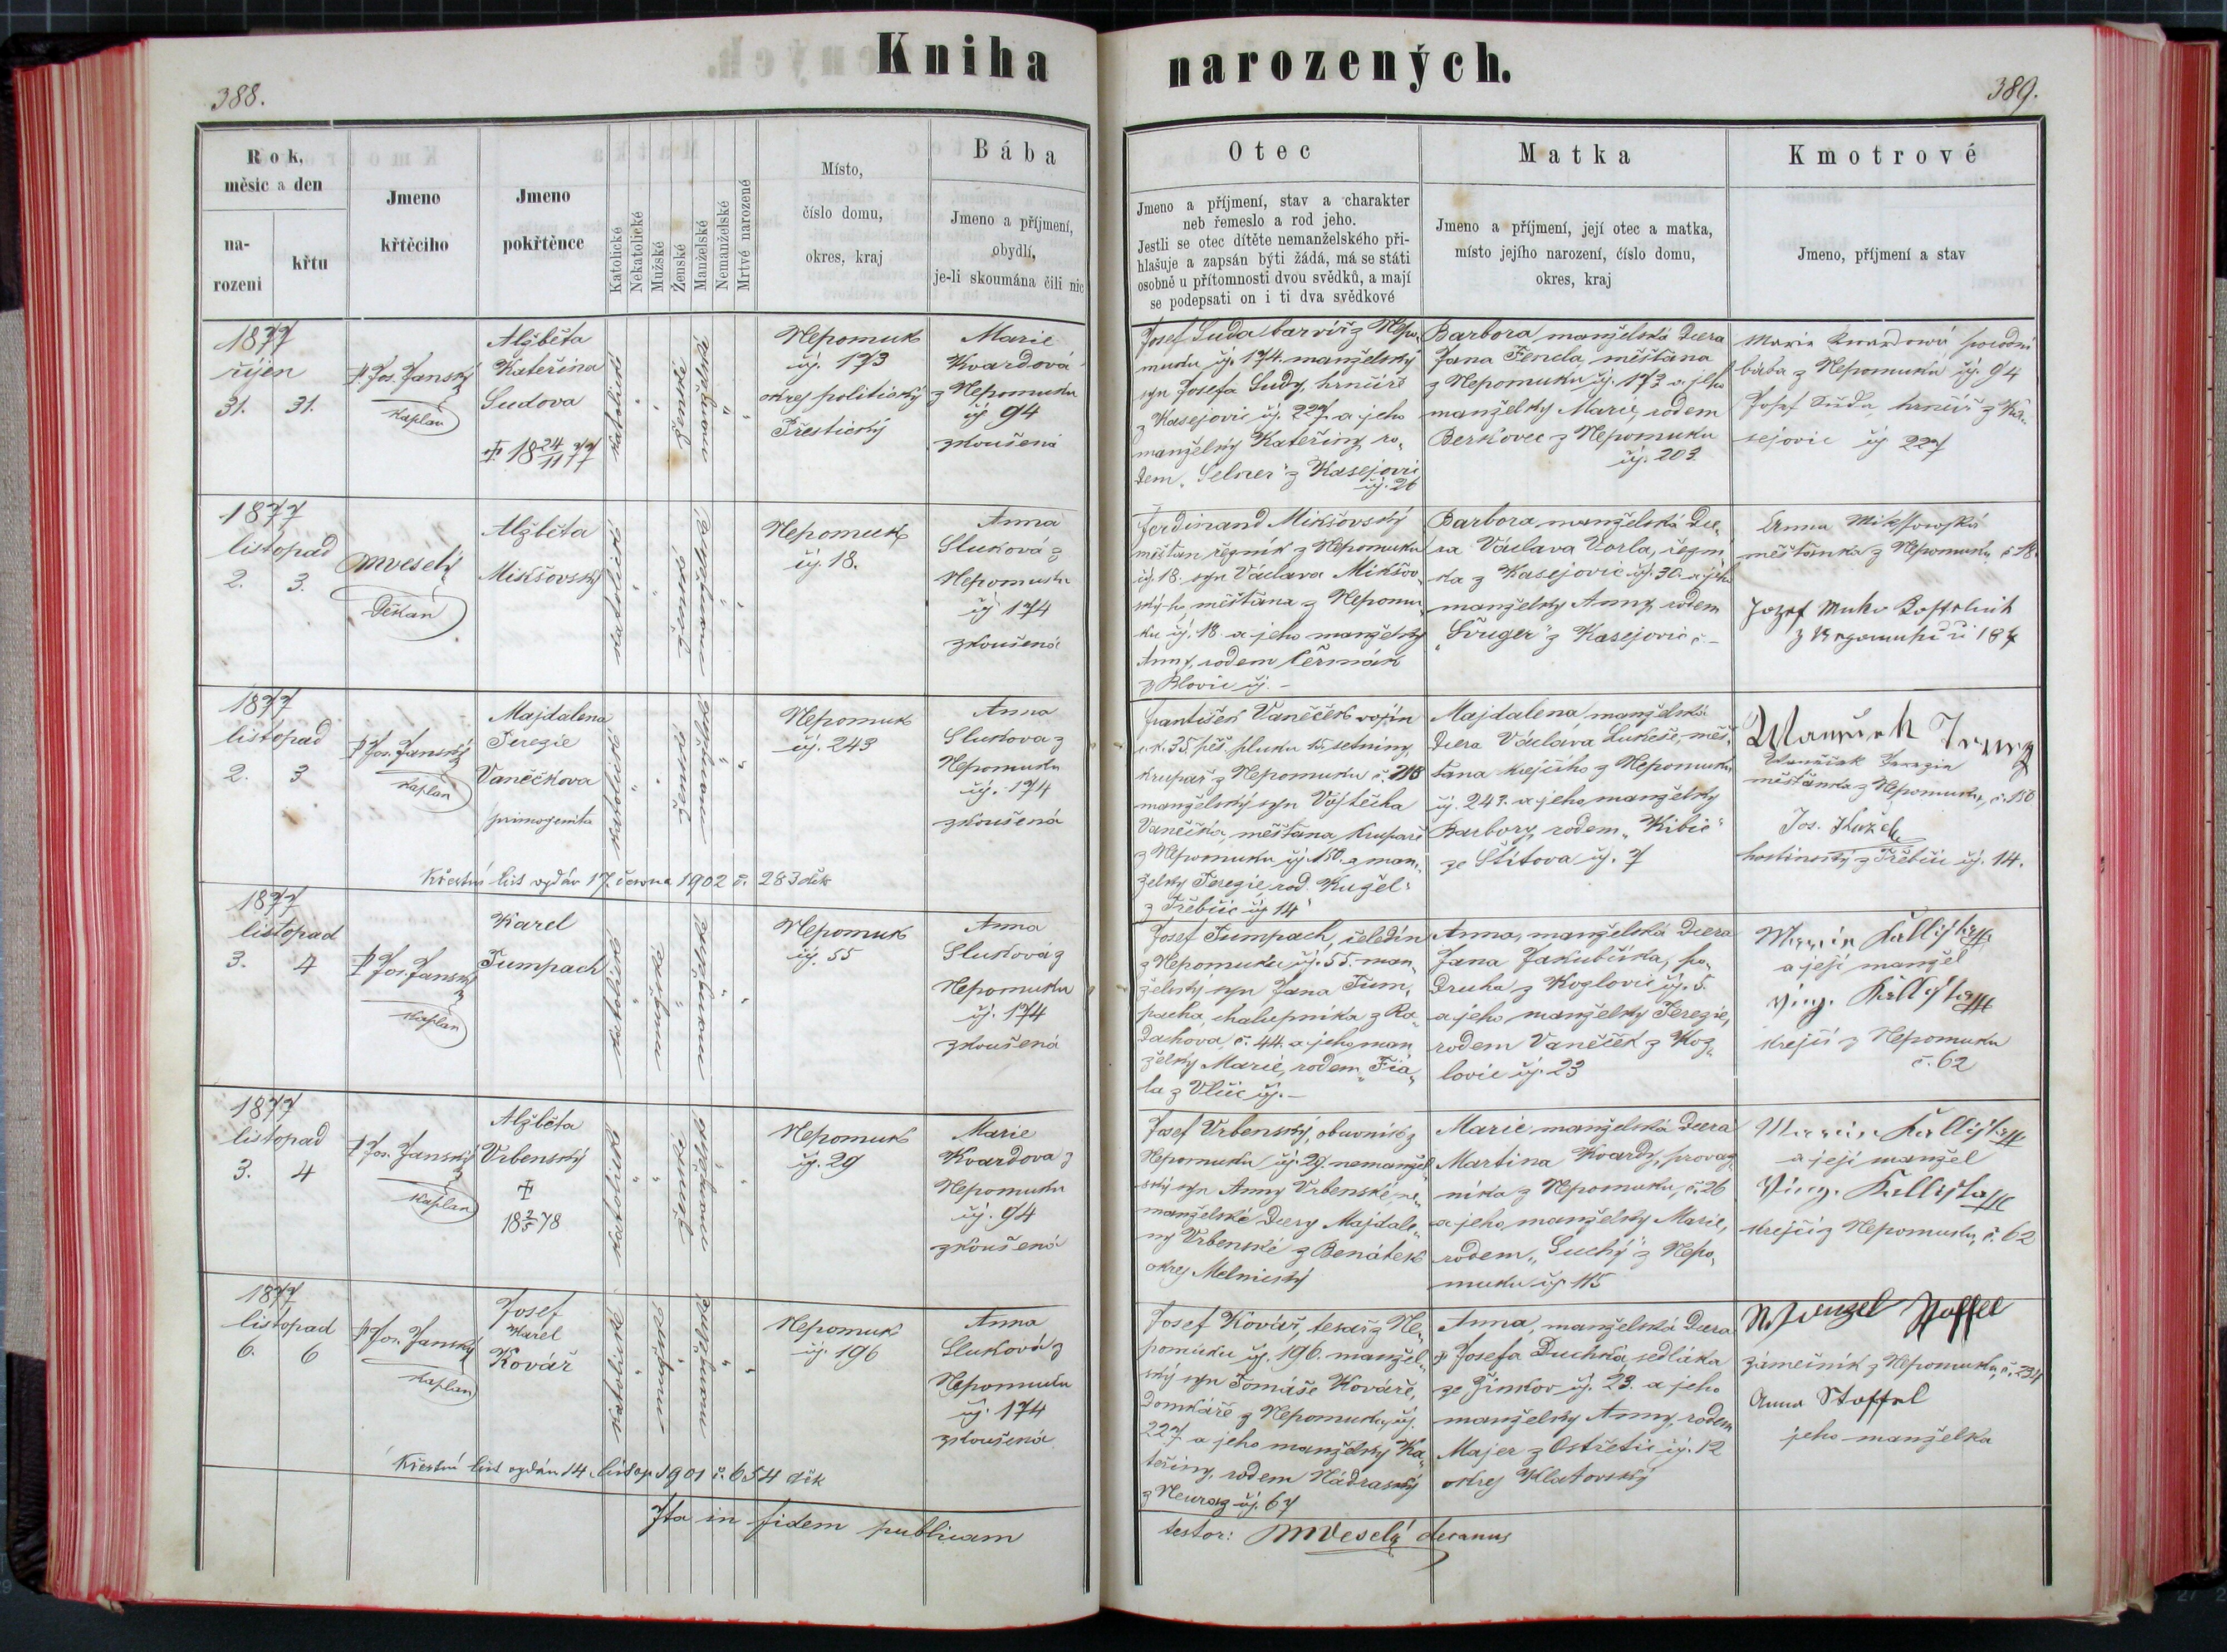 Kniha narozených.
388.
389.
Rok,
měsíc a den
na-
rození
křtu
Jmeno
křtěcího
Jmeno
pokřtěnce
Katolické
Nekatolické
Mužské
Ženské
Manželské
Nemanželské
Mrtvé narozené
Místo,
číslo domu,
okres, kraj
Bába
Jmeno a příjmení,
obydlí,
je-li skoumána čili nic
Otec
Jmeno a příjmení, stav a charakter
neb řemeslo a rod jeho.
Jestli se otec dítěte nemanželského při-
hlašuje a zapsán býti žádá, má se státi
osobně u přítomnosti dvou svědků, a mají
se podepsati on i ti dva svědkové
Matka
Jmeno a příjmení, její otec a matka,
místo jejího narození, číslo domu,
okres, kraj
Kmotrové
Jmeno, příjmení a stav
1877
říjen
31. 31.
P. Jos. Janský
kaplan
Alžběta
Kateřina
Sudova
† 18 24/11 77
katolické
ženské
manželské
Nepomuk
čj. 173
okres politický
Přestický
Marie
Kvardová
z Nepomuku
čj 94
zkoušená
Josef Suda barvíř z Nepo-
muku čj. 174. manželský
syn Josefa Sudy, hrnčíře
z Kasejovic čj. 227 a jeho
manželky Kateřiny, ro-
dem "Selner" z Kasejovic
čj. 26
Barbora manželská dcera
Jana Fenda, měšťana
z Nepomuku čj. 173 a jeho
manželky Marie, rodem
Berkovec z Nepomuku
čj. 203.
Maria Kwardowá porodní
bába z Nepomuku čj. 94
Josef Suda, hrnčíř z Ka-
sejovic čj 227
1877
listopad
2. 3.
MVeselý
Děkan
Alžběta
Mikšovský
katolické
ženské
manželské
Nepomuk
čj. 18.
Anna
Sluková z
Nepomuku
čj 174
zkoušená
Ferdinand Mikšovský
měšťan řezník z Nepomuku
čj. 18. syn Václava Mikšov-
ský-ho, měšťana z Nepomu-
ku čj. 18 a jeho manželky
Anny, rodem Čermák
z Blovic čj. -
Barbora manželská dce-
ra Václava Vorla, řezní
ka z Kasejovic čj. 30. a jeho
manželky Anny, rodem
z Kasejovic č -
Anna Mikssowská
měšťanka z Nepomuku č 18.
Jozef
1877
listopad
2. 3
P. Jos. Janský
kaplan
Majdalena
Terezie
Vaněčkova
primogenita
katolické
ženské
manželské
Nepomuk
čj. 243
Anna
Slukova z
Nepomuku
čj. 174
zkoušená
Křestní list vydán 17. června 1902 č. 283 děk
František Vaněček vojín
c. k. 35. pěš. pluku 15. setniny,
krupař z Nepomuku
manželský syn Vojtěcha
Vaněčka, měšťana krupaře
z Nepomuku čj. 150. a man-
želky Terezie rod. "Kužel"
z Třebčic čj 14
Majdalena manželská
dcera Václava Lukeše, měš-
ťana krejčího z Nepomuku
čj. 243. a jeho manželky
Barbory, rodem "Kibic"
ze Štítova čj. 7
měšťanka z Nepomuku, č. 150
Jos. Kužel
hostinský z Třebčic čj. 14.
1877
listopad
3. 4
P. Jos. Janský
kaplan
Karel
Tumpach
katolické
mužské
manželské
Nepomuk
čj. 55
Anna
Sluková z
Nepomuku
čj. 174
zkoušená
Josef Tumpach, čeledín
z Nepomuku čj. 55. man-
želský syn Jana Tum-
pacha, chalupníka z Ra-
dachova č. 44. a jeho man
želky Marie, rodem "Fia-
la z Vlčic čj. -
Anna, manželská dcera
Jana Jakubčíka, po-
druha z Kozlovic čj. 5.
a jeho manželky Terezie,
rodem Vaněček z Koz-
lovic čj. 23
Marie Kallista
a její manžel
Vinz. Kallista
krejčí z Nepomuku
č. 62
1877
listopad
3. 4
P. Jos. Janský
kaplan
Alžběta
Vrbenský
†
18 2/5 78
katolické
ženské
manželské
Nepomuk
čj. 29
Marie
Kvardova z
Nepomuku
čj. 94
zkoušená
Josef Vrbenský, obuvník z
Nepomuku čj. 29. nemanžel
ský syn Anny Vrbenské, ne-
manželské dcery Majdale-
ny Vrbenské z Benátek
okres Melnický
Marie manželská dcera
Martina Kvardy, provaz-
níka z Nepomuku, č. 26
a jeho manželky Marie,
rodem "Suchý" z Nepo-
muku čj. 115
Marie Kallista
a její manžel
Vinz. Kallista
krejčí z Nepomuku, č. 62
1877
listopad
6. 6
P. Jos. Janský
kaplan
Josef
Karel
Kovář
katolické
mužské
manželské
Nepomuk
čj. 196
Anna
Sluková z
Nepomuku
čj. 174
zkoušená
Křestní list vydán 14. listop 1901 č. 654 děk
Josef Kovář, tesař z Ne-
pomuku čj. 196. manžel-
ský syn Tomáše Kováře,
domkáře z Nepomuku, čj.
227 a jeho manželky Ka-
teřiny, rodem Nádraský
z Neuraz čj. 67
Anna, manželská dcera
† Josefa Duchka, sedláka
ze Žinkov čj. 23. a jeho
manželky Anny, rodem
Majer z Ostřetic čj. 12
okres Klatovský
Wenzel Stoffel
zámečník z Nepomuku, č. 234
Anna Stoffel
jeho manželka
Ita in fidem publicam
testor: MVeselý decanus